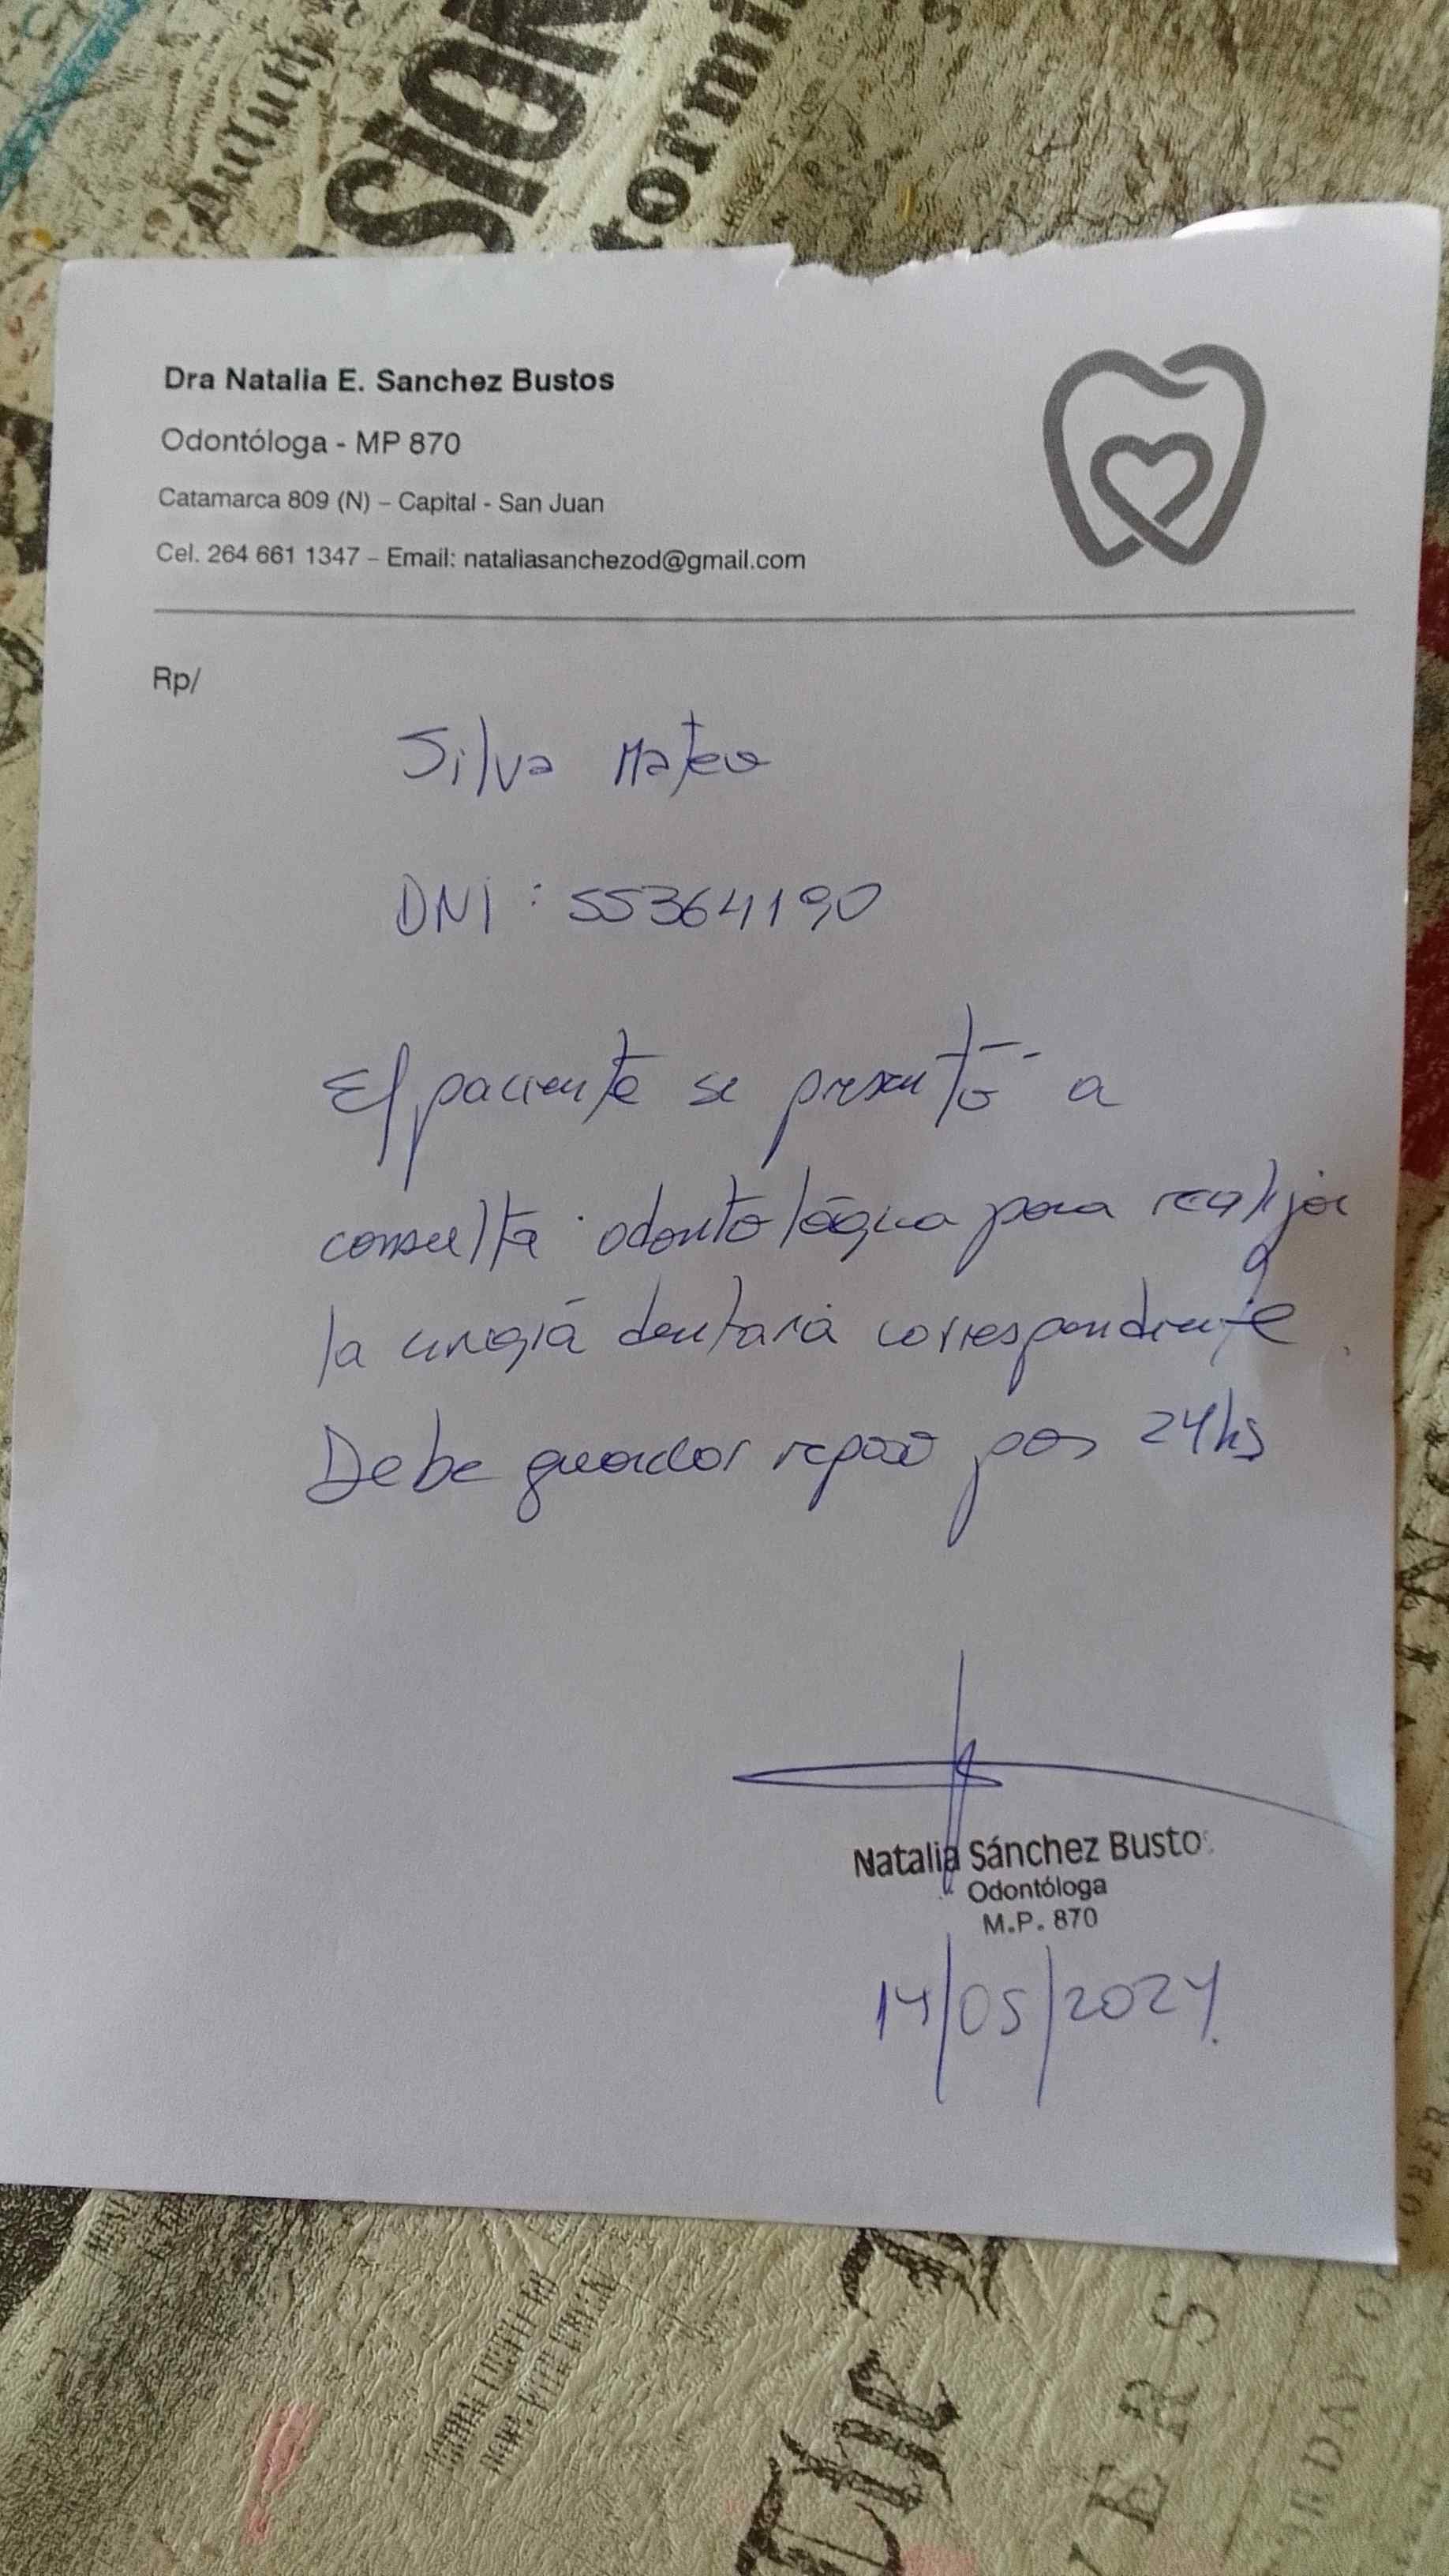 SION
tormi
Dra Natalia E. Sanchez Bustos
Odontóloga - MP 870
Catamarca 809 (N) – Capital - San Juan
Cel. 264 661 1347 – Email: nataliasanchezod@gmail.com
Rp/
Silva Mateo
DNI : 55364190
El paciente se presentó a
consulta odontológica para realizar
la cirugiá dentaria correspondiente.
Debe guardar reposo por 24hs
Natalia Sánchez Bustos
Odontóloga
M.P. 870
14/05/2024.
The
VERS